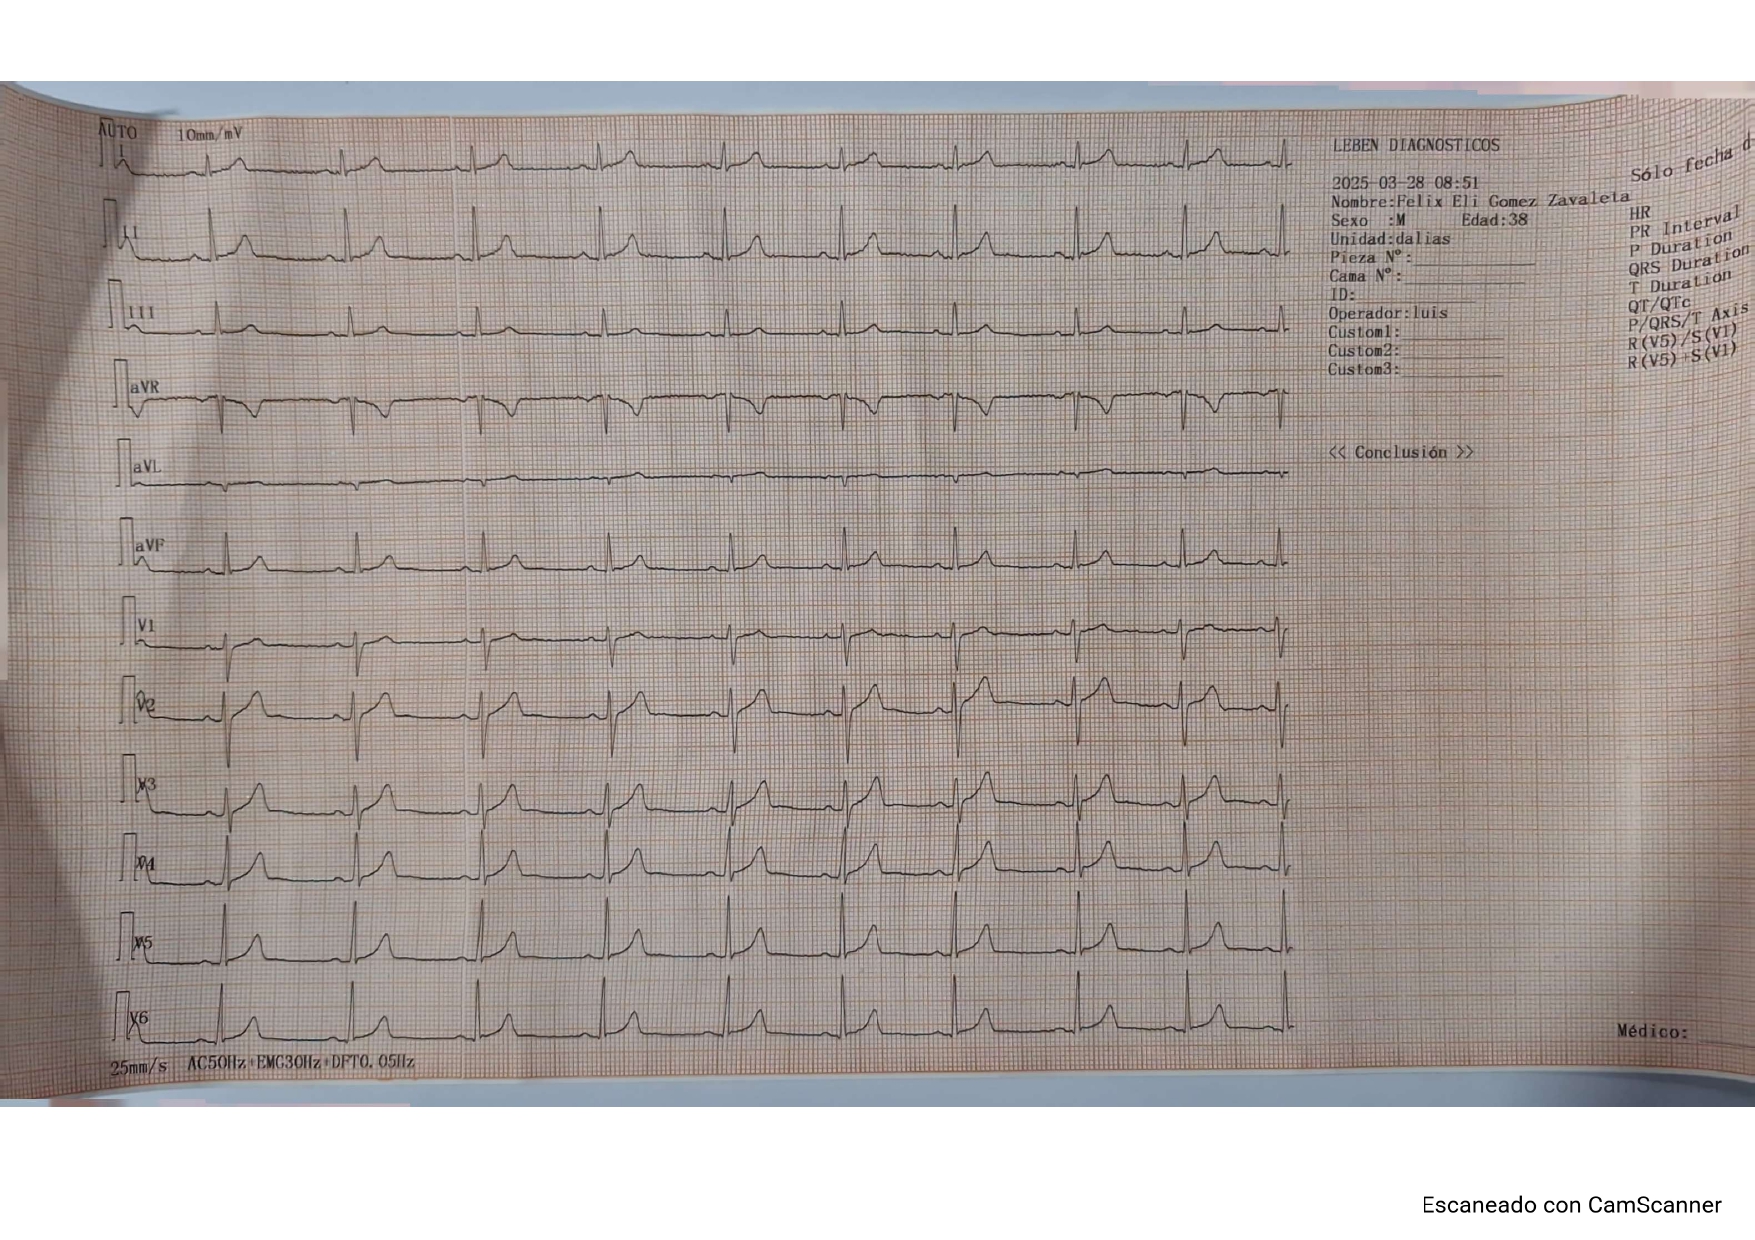 AUTO 10mm/mV
I
II
III
aVR
aVL
aVF
V1
V2
V3
V4
V5
V6
25mm/s AC50Hz+EMG30Hz+DFT0.05Hz
LEBEN DIAGNOSTICOS
2025-03-28 08:51
Nombre:Felix Eli Gomez Zavaleta
Sexo :M Edad:38
Unidad:dalias
Pieza Nº:
Cama Nº:
ID:
Operador:luis
Custom1:
Custom2:
Custom3:
<< Conclusión >>
Sólo fecha d
HR
PR Interval
P Duration
QRS Duration
T Duration
QT/QTc
P/QRS/T Axis
R(V5)/S(V1)
R(V5)+S(V1)
Médico:
Escaneado con CamScanner